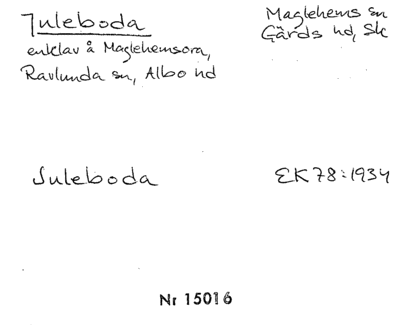 Juleboda
Maglehems sn
Gärds hd, Sk
enklav å Maglehemsora,
Ravlunda sn, Albo hd
Juleboda
EK 78:1934
Nr 15016